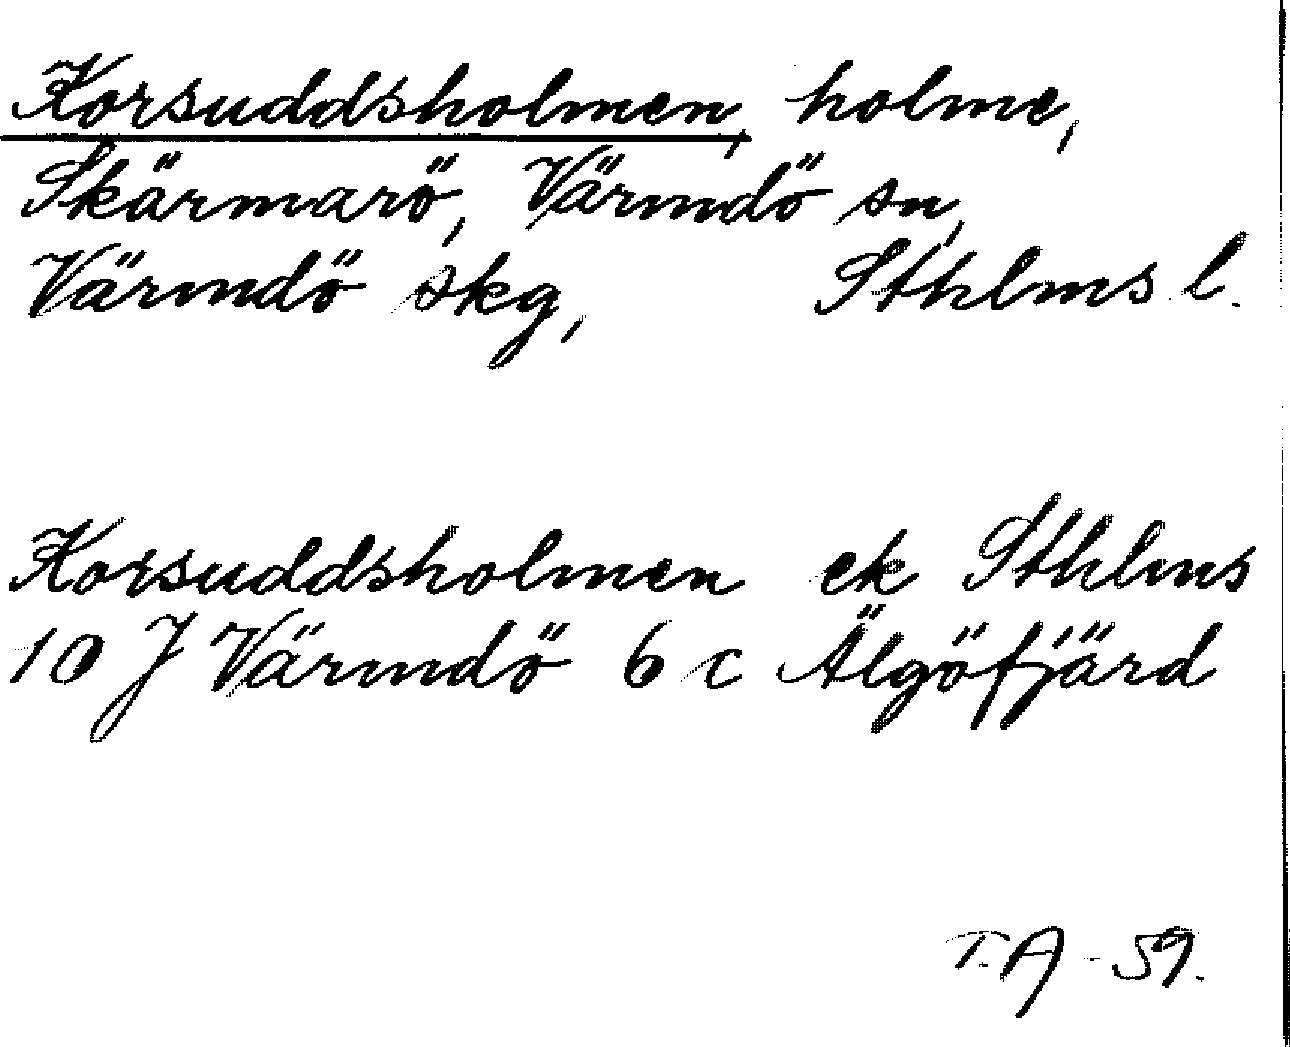 Korsuddsholmen, holme,
Skärmarö, Värmdö sn,
Värmdö skg, Sthlms l.
Korsuddsholmen ek Sthlms
10 J Värmdö 6 c Älgöfjärd
T.A - 59.